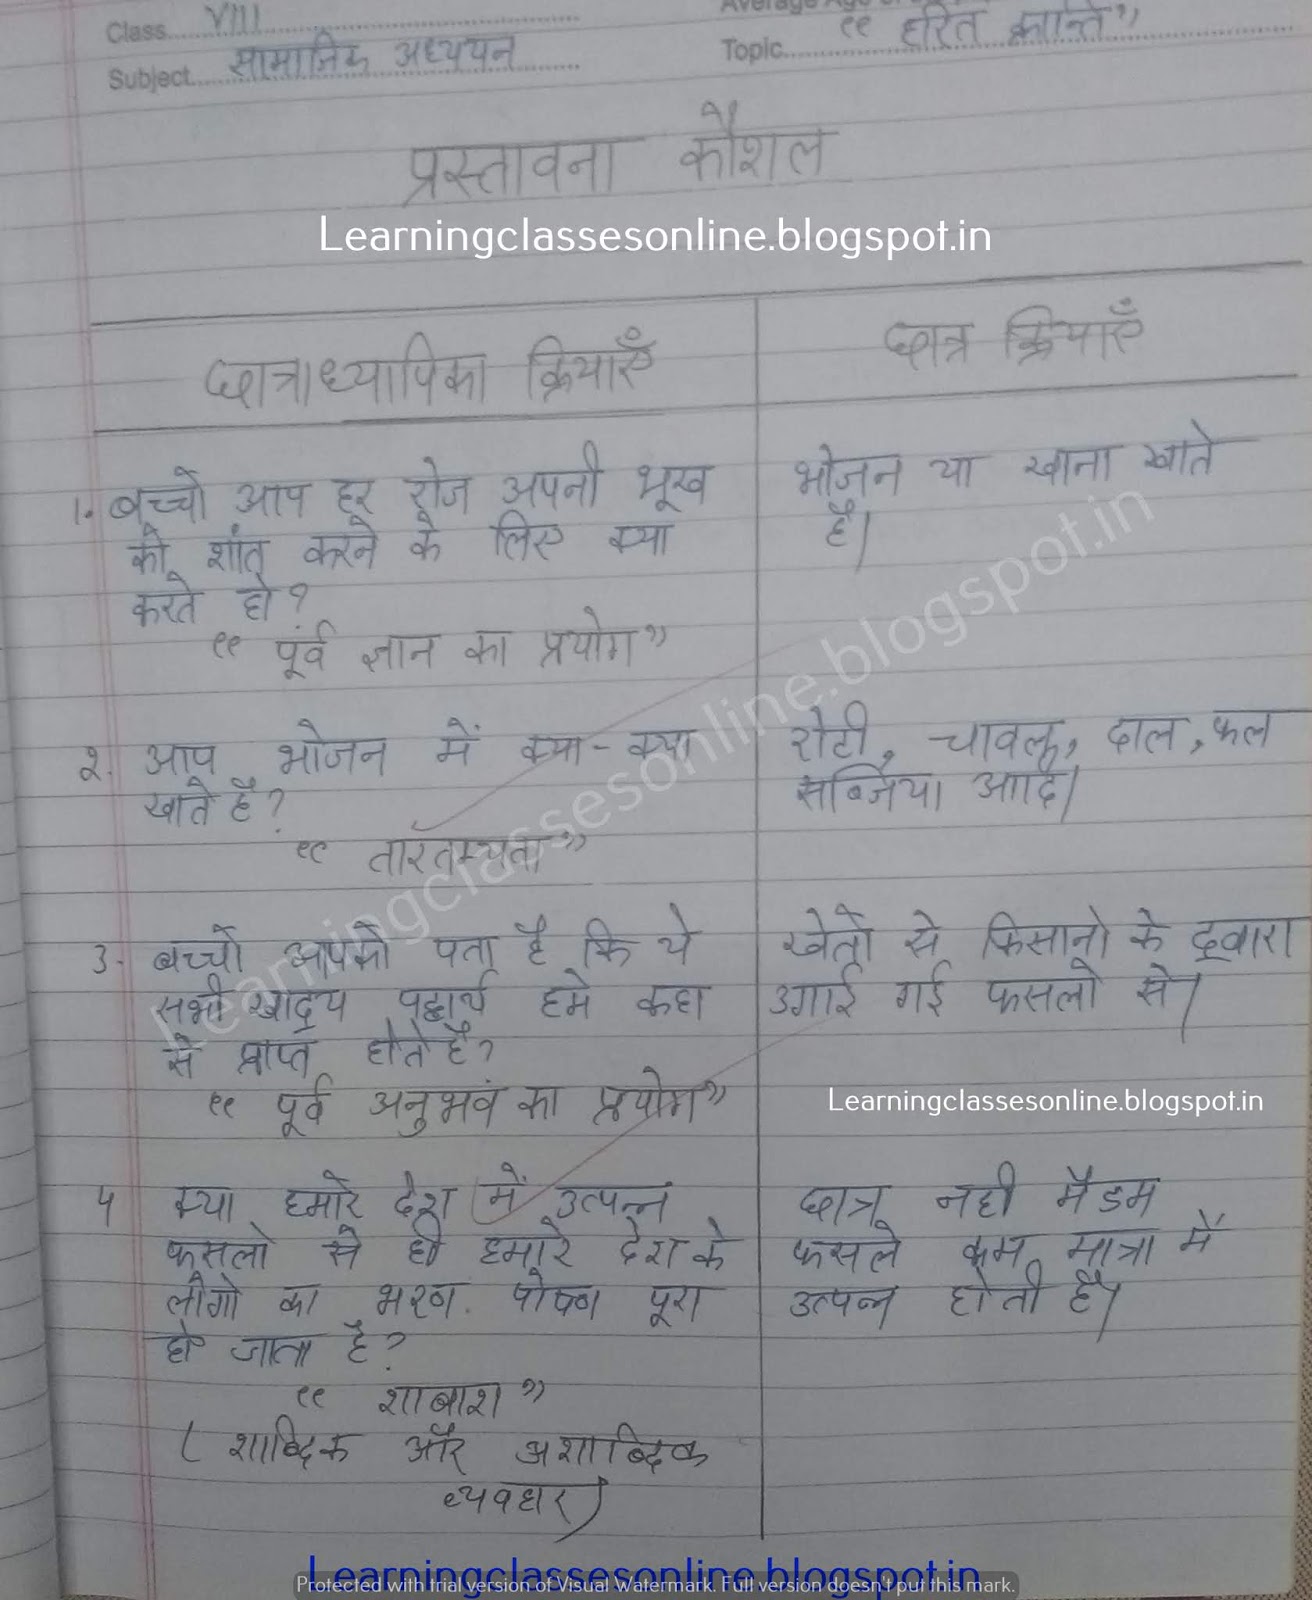 Average Age of
Class VIII
Topic "हरित क्रान्ति"
Subject सामाजिक अध्ययन
प्रस्तावना कौशल
Learningclassesonline.blogspot.in
छात्राध्यापिका क्रियाएँ
छात्र क्रियाएँ
1. बच्चों आप हर रोज अपनी भूख
को शांत करने के लिए क्या
करते हो?
"पूर्व ज्ञान का प्रयोग"
भोजन या खाना खाते
है।
2. आप भोजन में क्या-क्या
खाते है?
"तारतम्यता"
रोटी, चावल, दाल, फल
सब्जिया आदि।
3. बच्चों आपको पता है कि ये
सभी खाद्रय पदार्थ हमे कहा
से प्राप्त होते है?
"पूर्व अनुभव का प्रयोग"
खेतों से किसानो के द्वारा
उगाई गई फसलो से।
Learningclassesonline.blogspot.in
4 क्या हमारे देश में उत्पन्न
फसलो से ही हमारे देश के
लोगो का भरण पोषण पूरा
हो जाता है?
"शाबाश"
(शाब्दिक और अशाब्दिक
व्यवहार)
छात्र नही मैडम
फसले कम मात्रा में
उत्पन्न होती है।
Learningclassesonline.blogspot.in
Learningclassesonline.blogspot.in
Protected with trial version of Visual Watermark. Full version doesn't put this mark.